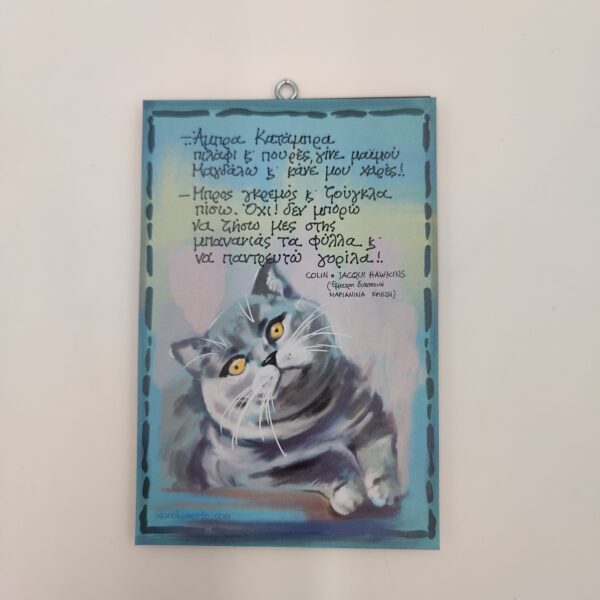 – Άμπρα Κατάμπρα
πιλάφι κ' πουρές, γίνε μαϊμού
Μαγδάλω κ' κάνε μου χαρές!
– Μπρος γκρεμός κ' ζούγκλα
πίσω. Όχι! δεν μπορώ
να ζήσω μες στης
μπανανιάς τα φύλλα κ'
να παντρευτώ γορίλα!!
COLIN & JACQUI HAWKINS
(Έμμετρη διασκευή
ΜΑΡΙΑΝΙΝΑ ΚΡΙΕΖΗ)